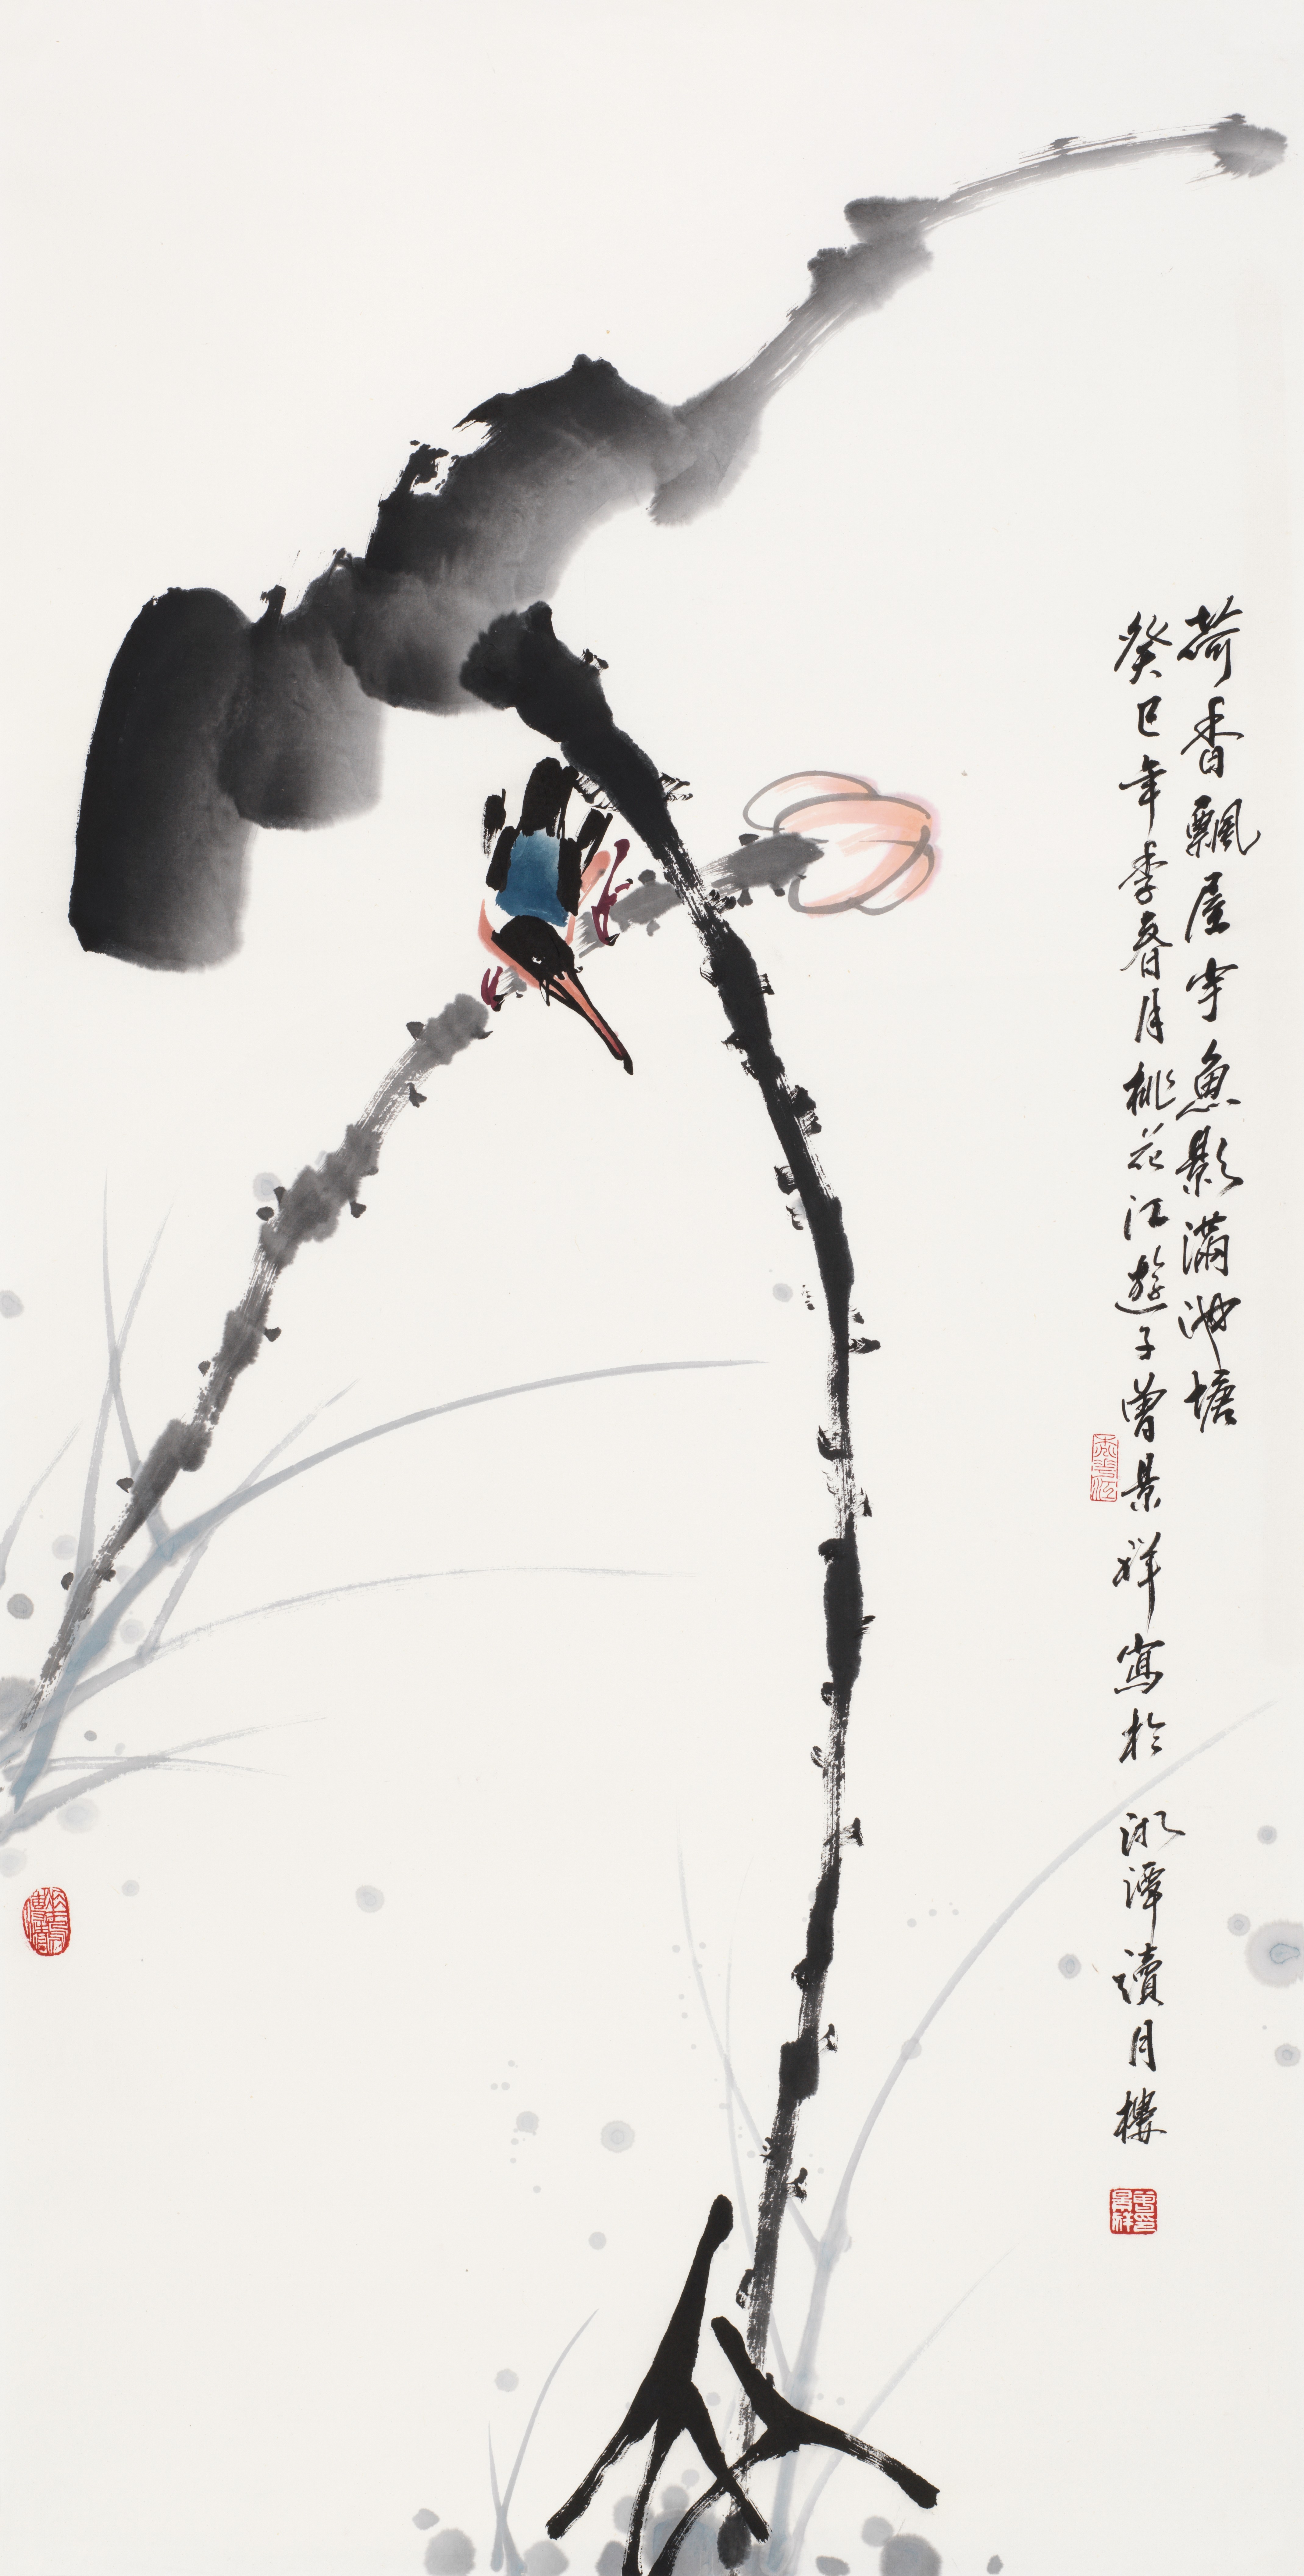 荷香飄屋宇魚影滿池塘
癸巳年季春月桃花江遊子曾景祥寫於湘潭讀月樓